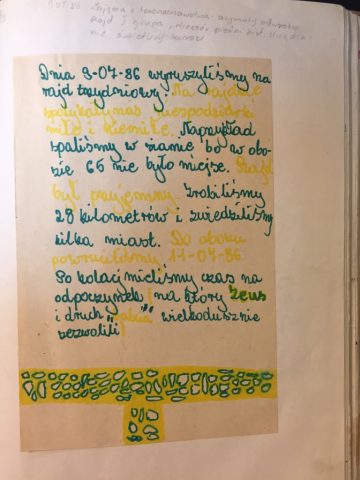 Dnia 9-07-86 wyruszyliśmy na
rajd trzydniowy. Na rajdzie
spotykały nas niespodzianki
miłe i niemiłe. Naprzykład
spaliśmy w sianie bo w obo-
zie 66 nie było miejsc. Rajd
był przyjemny. Zrobiliśmy
28 kilometrów i zwiedziliśmy
kilka miast. Do obozu
powruciliśmy 11-07-86.
Po kolacji mieliśmy czas na
odpoczynek (na który Zeus
i druch "Jabuś" wielkodusznie
zezwolili)